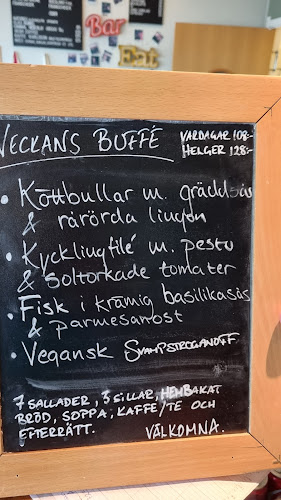 Bar
Eat
VECKANS BUFFÉ
VARDAGAR 108:-
HELGER 128:-
• Köttbullar m. gräddsås
& rårörda lingon
• Kycklingfilé m. pesto
& soltorkade tomater
• Fisk i krämig basilikasås
& parmesanost
• Vegansk SVAMPSTROGANOFF
7 SALLADER, 3 SILLAR, HEMBAKAT
BRÖD, SOPPA, KAFFE/TE OCH
EFTERRÄTT. VÄLKOMNA.